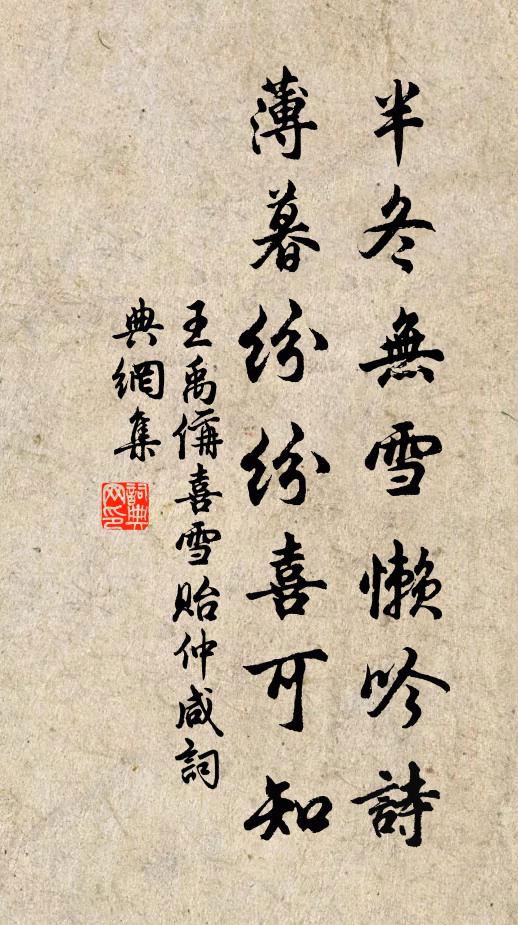 半冬無雪懶吟詩
薄暮紛紛喜可知
王禹偁喜雪貽仲咸詞
典網集
詞典
网印